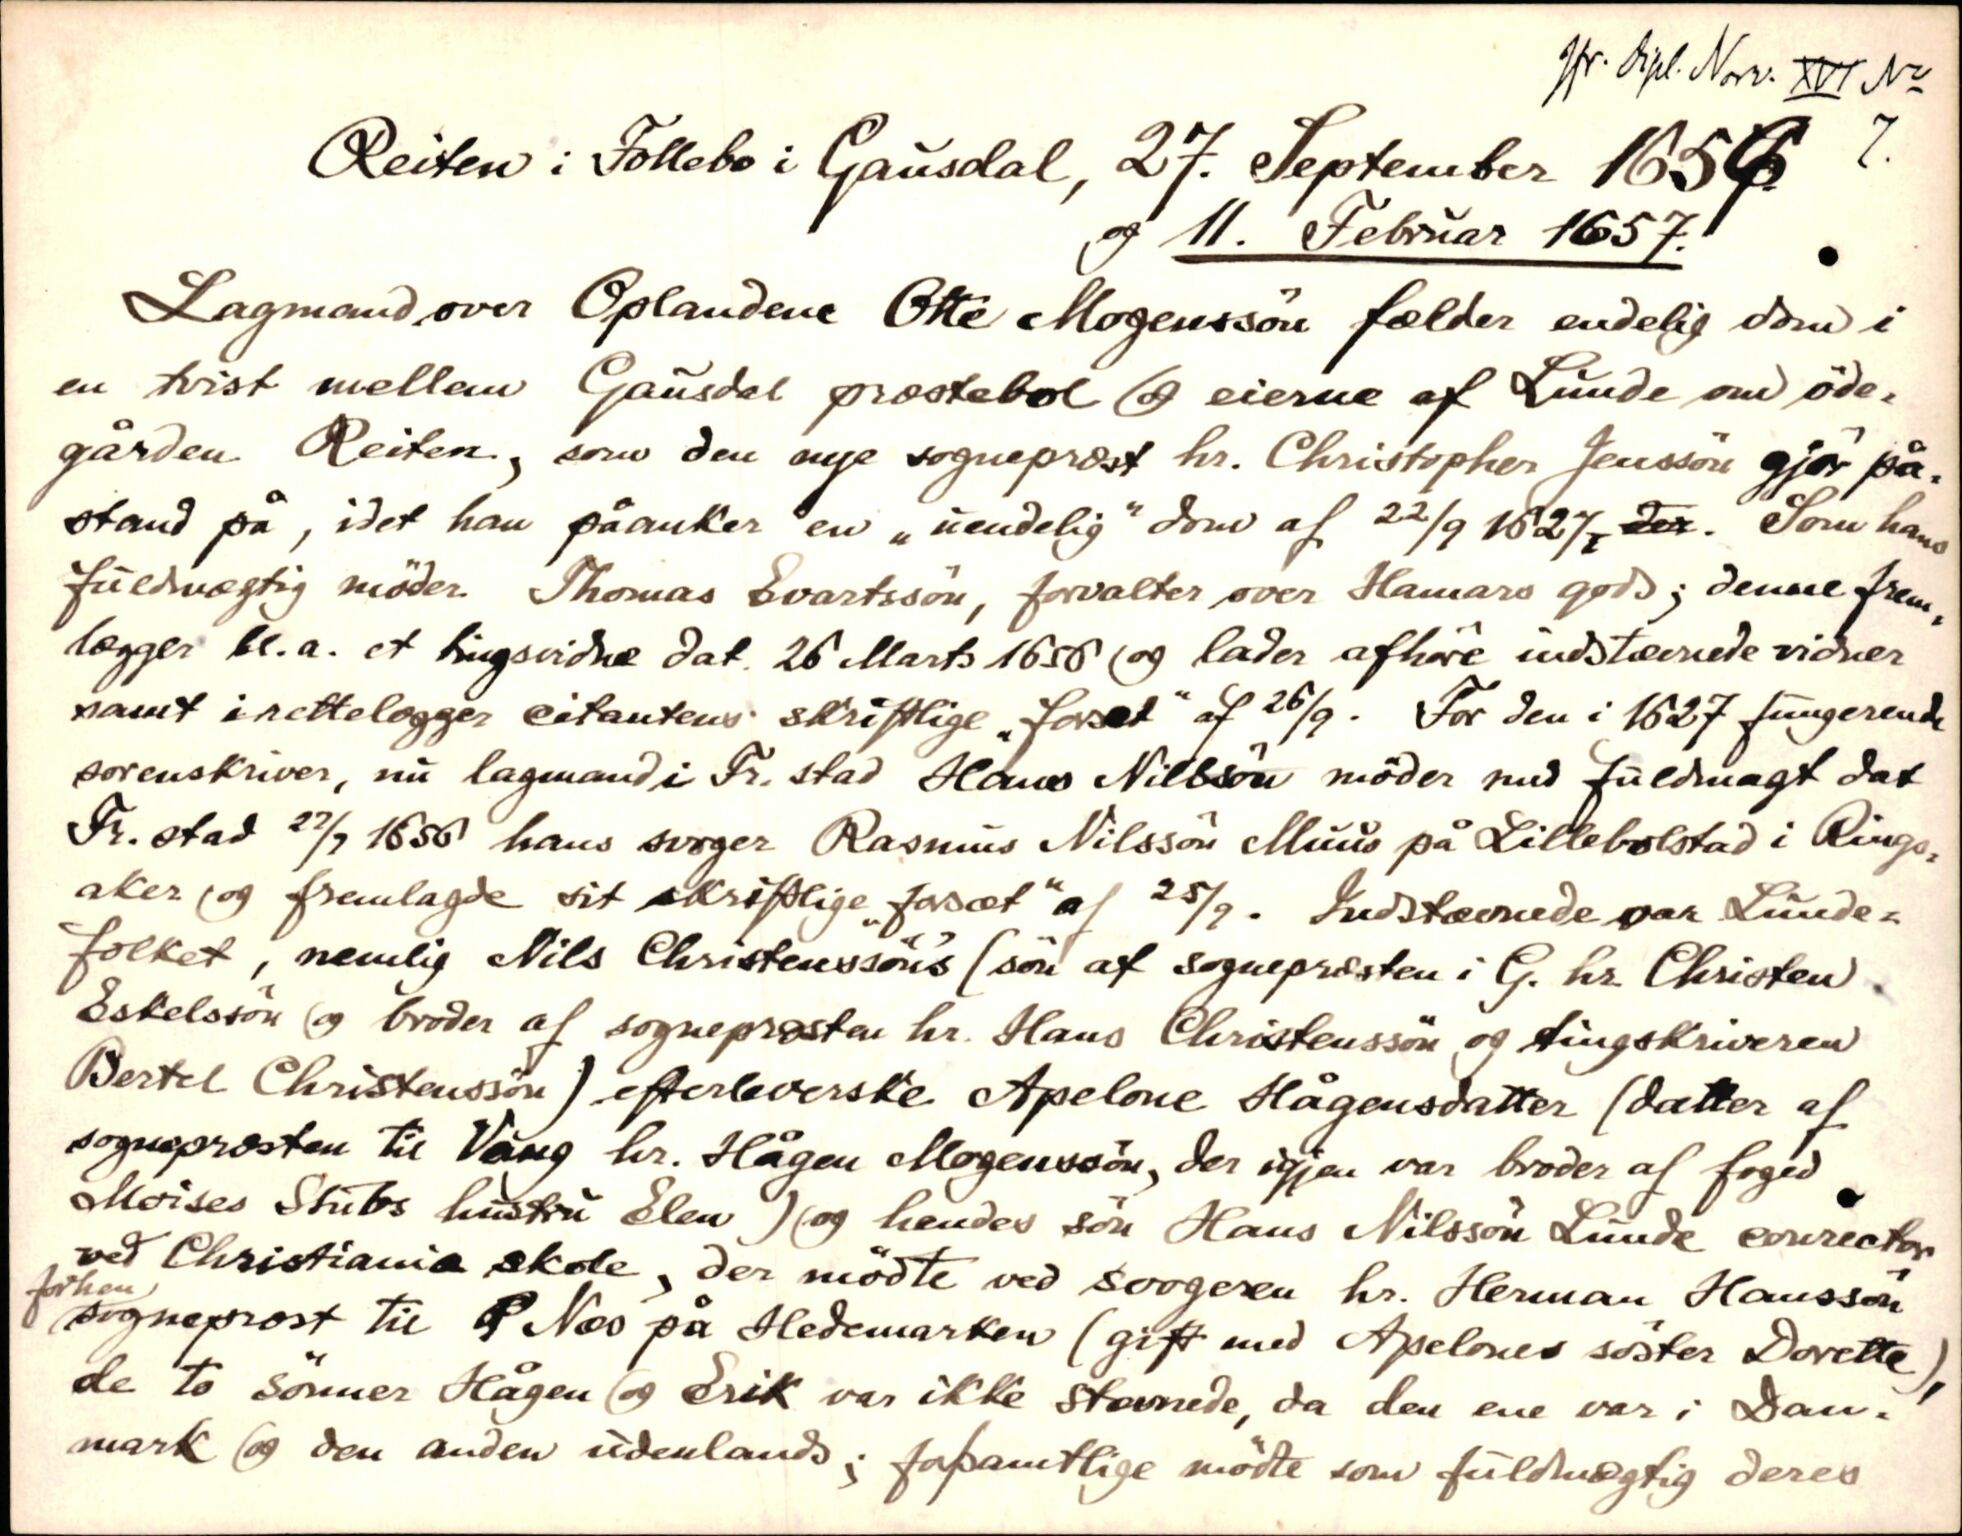 Jfr. Dipl. Norv. XVI No
7.
Reiten i Follebo i Gausdal, 27. September 1656
og 11. Februar 1657.
Lagmand over Oplandene Otte Mogenssön fælder endelig dom i
en tvist mellem Gausdal præstebol og eierne af Lunde om öde-
gården Reiten, som den nye sognepræst hr. Christopher Jenssön gjör på-
stand på, idet han påanker en „uendelig" dom af 22/9 1627 der. Som hans
fuldmægtig möder Thomas Evartssön, forvalter over Hamars gods; denne frem-
lægger bl.a. et tingsvidne dat. 26 Marts 1656 og lader afhöre indstævnede vidner
samt irettelægger citantens skriftlige „forset" af 26/9. For den i 1627 fungerende
sorenskriver, nu lagmand i Fr. stad Hans Nilssön möder med fuldmagt dat
Fr. stad 22/7 1656 hans svoger Rasmus Nilssön Muus på Lillebolstad i Rings-
aker og fremlagde sit skriftlige „forsæt" af 25/9. Indstævnede var Lunde-
folket, nemlig Nils Christenssöns (sön af sognepræsten i G. hr. Christen
Eskelssön og broder af sognepræsten hr. Hans Christenssön og tingskriveren
Bertel Christenssön) efterleverske Apelone Hågensdatter (datter af
sognepræsten til Vang hr. Hågen Mogenssön, der igjen var broder af foged
Moises Stubs hustru Elen) og hendes sön Hans Nilssön Lunde conrector
ved Christiania skole, der mödte ved svogeren hr. Herman Hanssön
forhen
sogneprest til Næs på Hedemarken (gift med Apelones söster Dorette),
de to sönner Hågen og Erik var ikke stævnede, da den ene var i Dan-
mark og den anden udenlands; for samtlige mödte som fuldmægtig deres